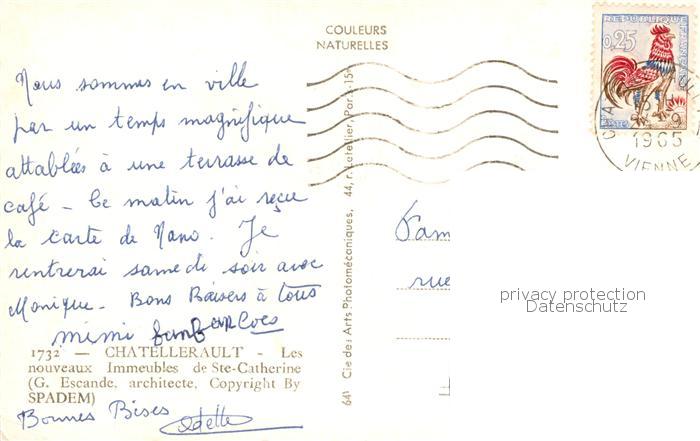 COULEURS
NATURELLES
REPUBLIQUE FRANÇAISE
0,25
POSTES
1965
VIENNE
Nous sommes en ville
par un temps magnifique
attablées à une terrasse de
café - Ce matin j'ai reçu
la carte de Nano. Je
rentrerai samedi soir avec
Monique - Bons Baisers à tous
mimi
1732 — CHATELLERAULT - Les
nouveaux Immeubles de Ste-Catherine
(G. Escande, architecte, Copyright By
SPADEM)
Bonnes Bises
Odette
641 Cie des Arts Photomécaniques, 44, r. Letellier, Par.-15e
Fam
rue
privacy protection
Datenschutz